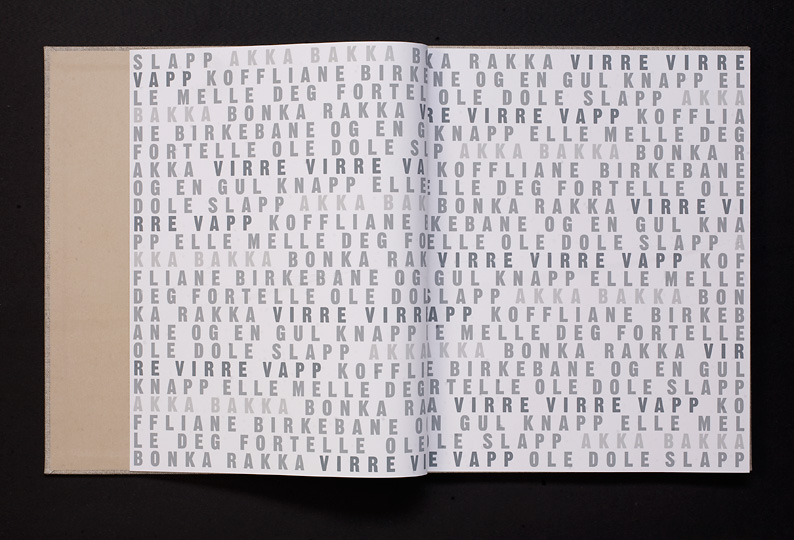 SLAPP AKKA BAKKA B KA RAKKA VIRRE VIRRE
VAPP KOFFLIANE BIRKE NE OG EN GUL KNAPP EL
LE MELLE DEG FORTEL OLE DOLE SLAPP AKKA
BAKKA BONKA RAKKA V RE VIRRE VAPP KOFFLIA
NE BIRKEBANE OG EN G KNAPP ELLE MELLE DEG
FORTELLE OLE DOLE SL P AKKA BAKKA BONKA R
AKKA VIRRE VIRRE VA KOFFLIANE BIRKEBANE
OG EN GUL KNAPP ELLE LLE DEG FORTELLE OLE
DOLE SLAPP AKKA BAK BONKA RAKKA VIRRE VI
RRE VAPP KOFFLIANE KEBANE OG EN GUL KNA
PP ELLE MELLE DEG FO ELLE OLE DOLE SLAPP A
KKA BAKKA BONKA RAK VIRRE VIRRE VAPP KOF
FLIANE BIRKEBANE OG GUL KNAPP ELLE MELLE
DEG FORTELLE OLE DO LAPP AKKA BAKKA BON
KA RAKKA VIRRE VIRR APP KOFFLIANE BIRKEB
ANE OG EN GUL KNAPP E MELLE DEG FORTELLE
OLE DOLE SLAPP AKKA KKA BONKA RAKKA VIR
RE VIRRE VAPP KOFFLI E BIRKEBANE OG EN GUL
KNAPP ELLE MELLE DEG RTELLE OLE DOLE SLAPP
AKKA BAKKA BONKA RA A VIRRE VIRRE VAPP KO
FFLIANE BIRKEBANE O N GUL KNAPP ELLE MEL
LE DEG FORTELLE OLE LE SLAPP AKKA BAKKA
BONKA RAKKA VIRRE VI E VAPP OLE DOLE SLAPP